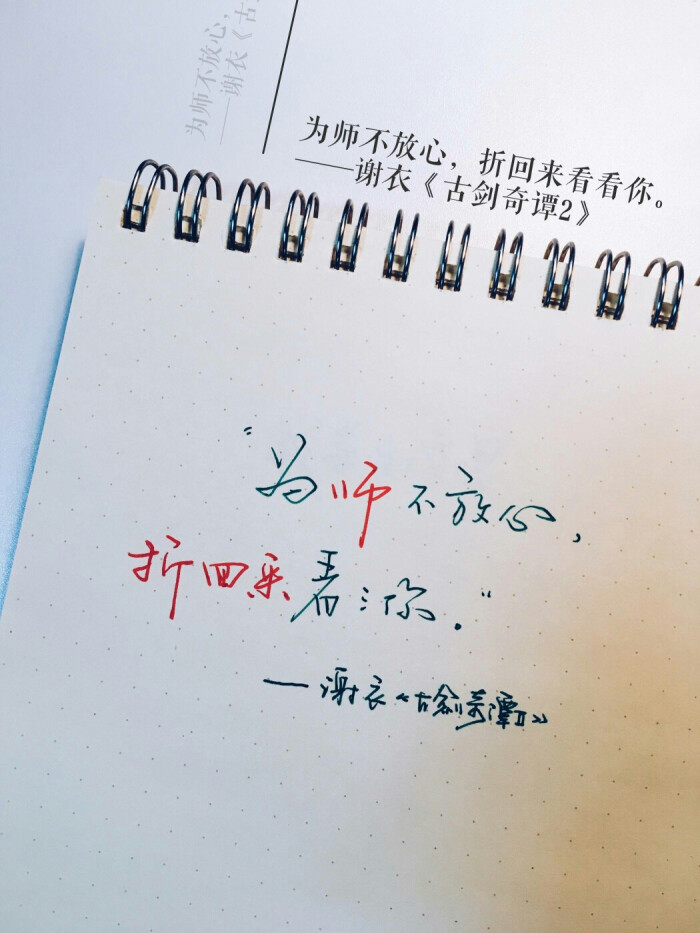 为师不放心,
——谢衣《古
为师不放心，折回来看看你。
——谢衣《古剑奇谭2》
"为师不放心，
折回来看：你."
—谢衣《古剑奇谭Ⅱ》